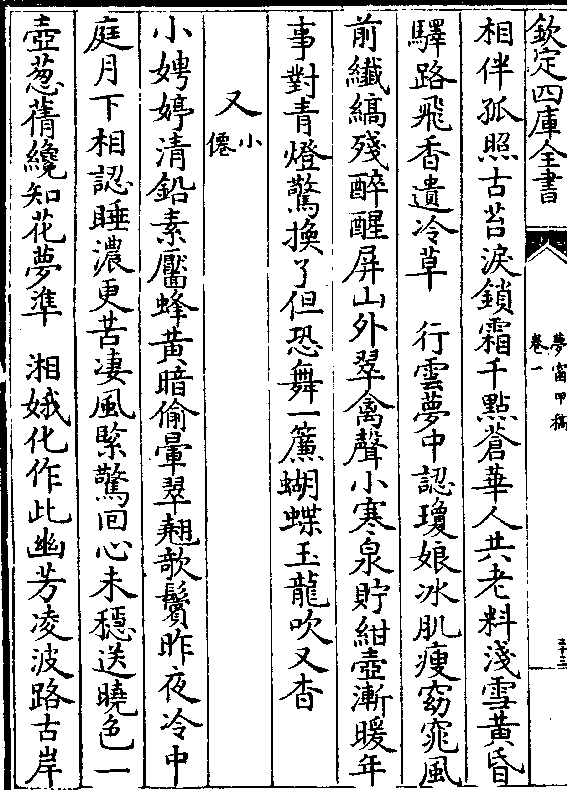 欽定四庫全書
夢窗甲稿
卷一
相伴孤照古苔淚鎖霜千點蒼華人共老料淺雪黃昏
驛路飛香遺冷草　行雲夢中認瓊娘冰肌瘦窈窕風
前纖縞殘醉醒屏山外翠禽聲小寒泉貯紺壺漸暖年
事對青燈驚換了但恐舞一簾蝴蝶玉龍吹又杳
又小僊
小娉婷清鉛素靨蜂黃暗偷暈翠翹欹鬢昨夜冷中
庭月下相認睡濃更苦淒風緊驚回心未穩送曉色一
壺葱蒨纔知花夢準　湘娥化作此幽芳凌波路古岸